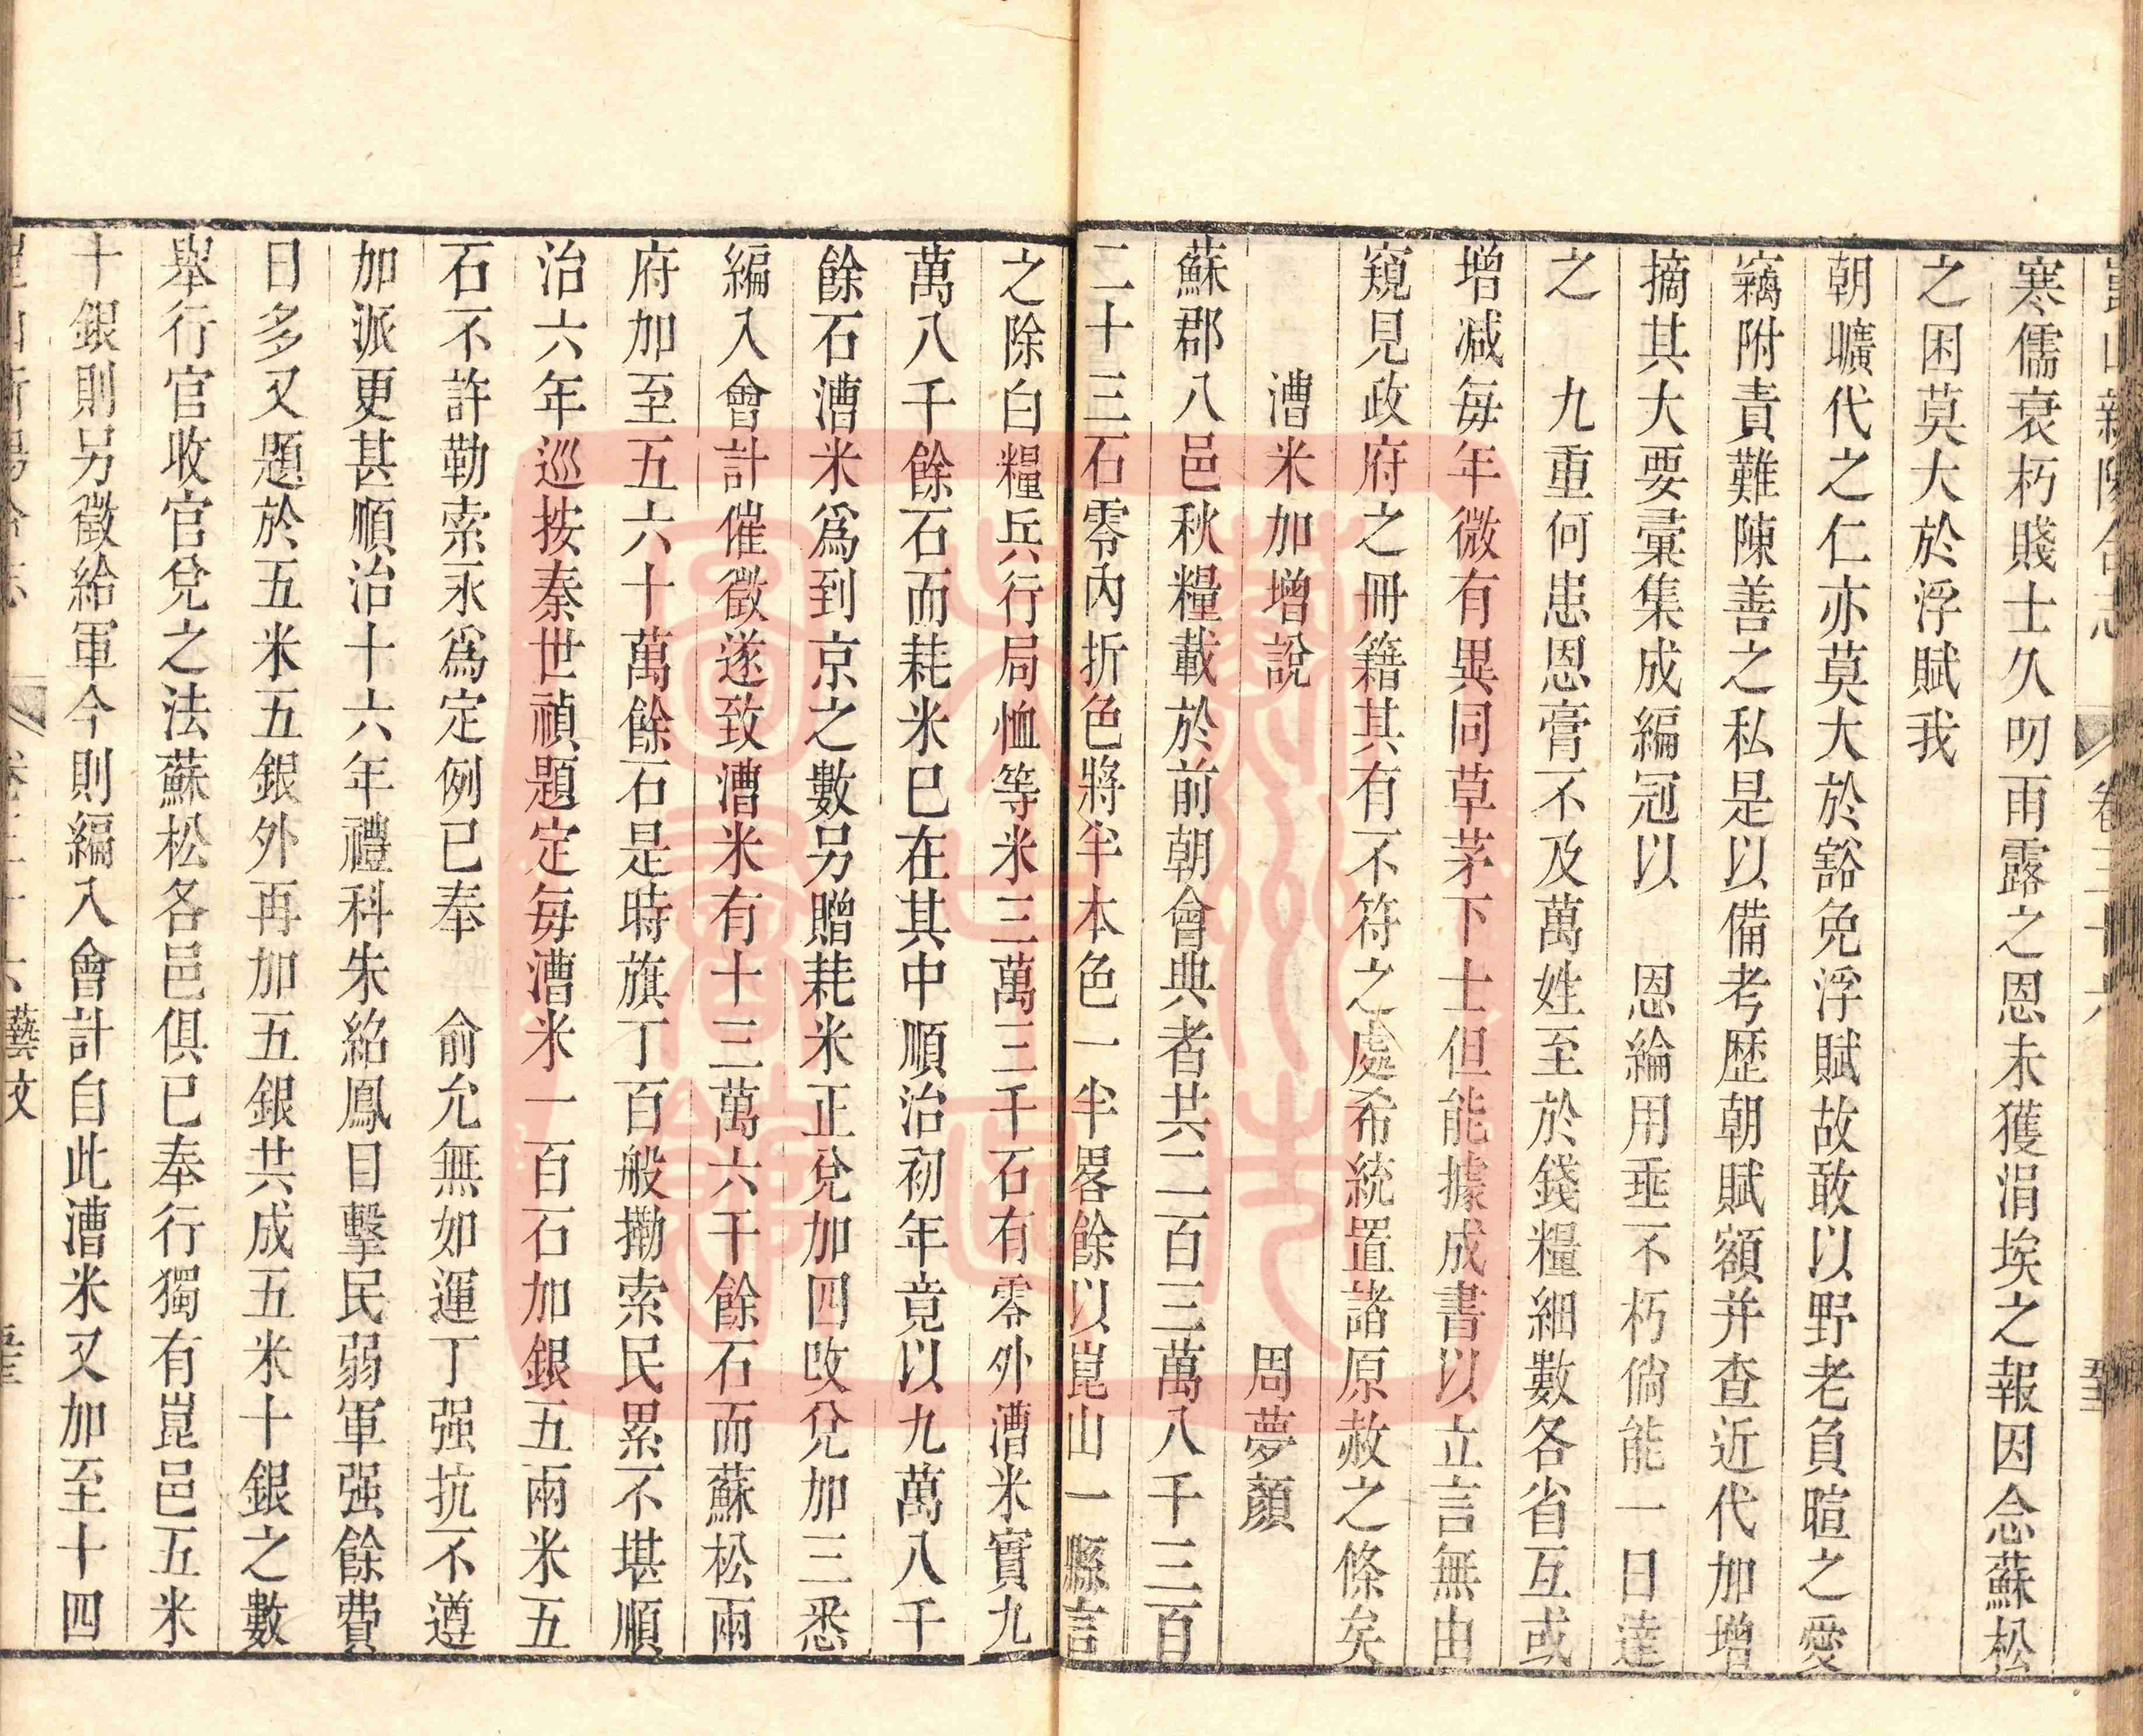 崑山新陽合志 卷三十六
寒儒衰朽賤士久叨雨露之恩未獲涓埃之報因念蘇松
之困莫大於浮賦我
朝曠代之仁亦莫大於豁免浮賦故敢以野老負暄之愛
竊附責難陳善之私是以備考歷朝賦額并查近代加增
摘其大要彙集成編冠以　恩綸用垂不朽倘能一日達
之　九重何患恩膏不及萬姓至於錢糧細數各省互或
增减每年微有異同草茅下士但能據成書以立言無由
窺見政府之冊籍其有不符之處希統置諸原赦之條矣
漕米加增說　周夢顏
蘇郡八邑秋糧載於前朝會典者共二百三萬八千三百
二十三石零內折色將半本色一半畧餘以崑山一縣言
之除白糧兵行局恤等米三萬三千石有零外漕米實九
萬八千餘石而耗米已在其中順治初年竟以九萬八千
餘石漕米爲到京之數另贈耗米正兌加四改兌加三悉
編入會計催徵遂致漕米有十三萬六千餘石而蘇松兩
府加至五六十萬餘石是時旗丁百般勒索民累不堪順
治六年巡按秦世禎題定每漕米一百石加銀五兩米五
石不許勒索永爲定例已奉　俞允無如運丁强抗不遵
加派更甚順治十六年禮科朱紹鳳目擊民弱軍强餘費
日多又題於五米五銀外再加五銀共成五米十銀之數
舉行官收官兌之法蘇松各邑俱已奉行獨有崑邑五米
十銀則另徵給軍今則編入會計自此漕米又加至十四
崑山新陽合志 卷三十六 藝文